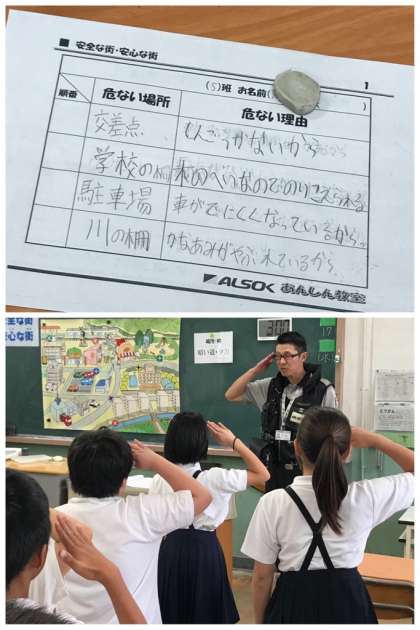 ■ 安全な街・安心な街
1
(5)班 お名前( )
順番
危ない場所
危ない理由
交差点
しんごうがないから
学校の柵
木のへいなのでのりこえられる
駐車場
車がでにくくなっているから
川の柵
かなあみがやぶれているから
ALSOK あんしん教室